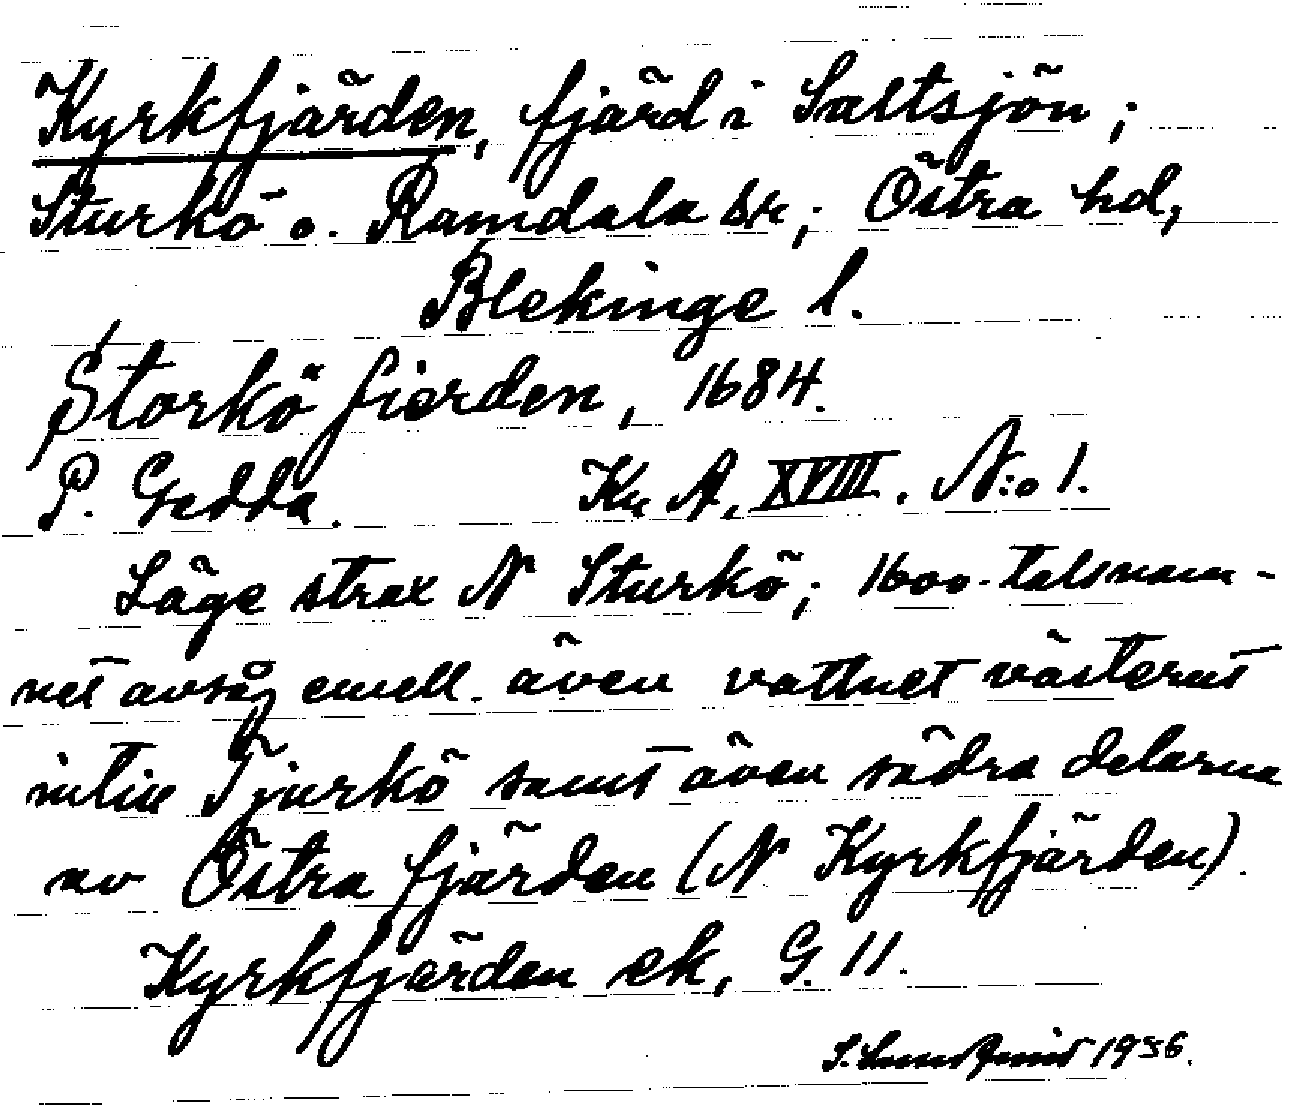 Kyrkfjärden, fjärd i Saltsjön;
Sturkö o. Ramdala skr; Östra hd,
Blekinge l.
Storkö fierden, 1684.
P. Gedda. Kr A, XVIII. N:o 1.
Läge strax N Sturkö; 1600-talsnam-
net avsåg emell. även vattnet västerut
intill Tjurkö samt även södra delarna
av Östra fjärden (N Kyrkfjärden).
Kyrkfjärden ek, G. 11.
1936.